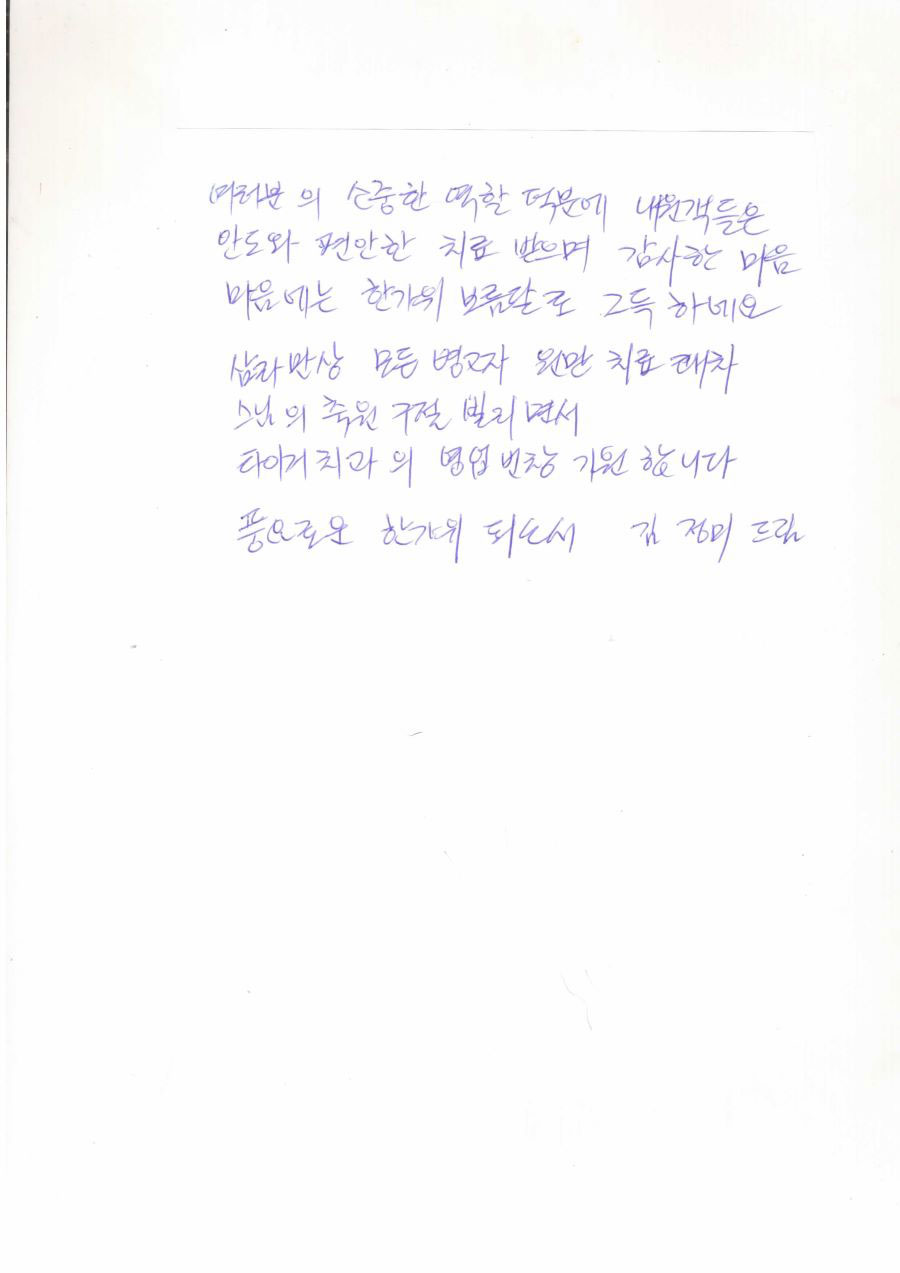 여러분의 소중한 역할 덕분에 내원객들은
안도와 편안한 치료 받으며 감사한 마음
마음에는 한가위 보름달로 그득하네요
삼라만상 모든 병고자 원만 치료 쾌차
스님의 축원 구절 빌리면서
타이거치과의 영업번창 기원합니다
풍요로운 한가위 되소서 김정미 드림